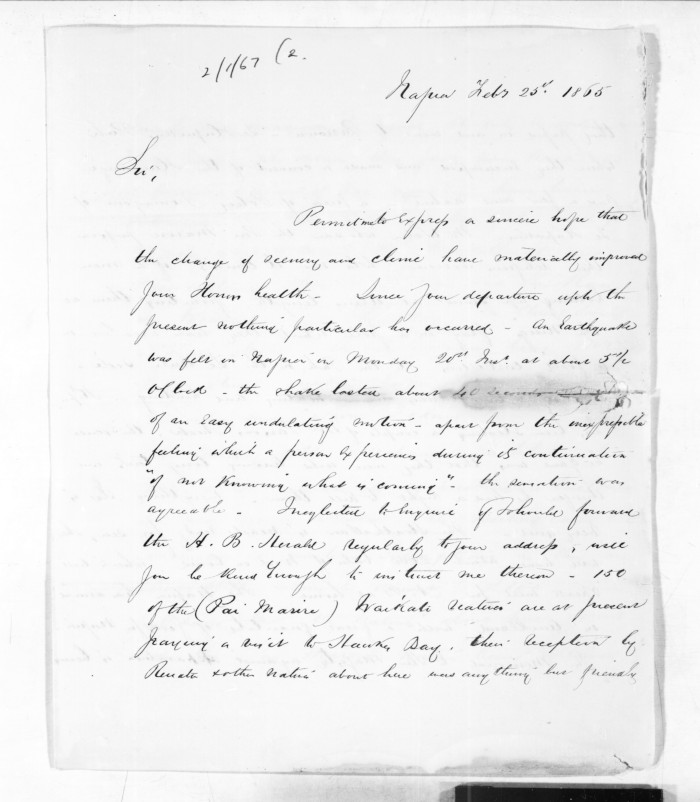 2/1/67 (2.
Napier Feby 25th. 1865
Sir,
Permit me to Express a sincere hope that
the change of scenery and clime have materially improved
Your Honors health - Since Your departure upto the
present nothing particular has occurred - An Earthquake
was felt in Napier on Monday 20th Inst. at about 5 1/2
OClock - the shake lasted about 40 seconds
of an Easy undulating motion - apart from the inexpressible
feeling which a person Experiences during its continuation
"of not Knowing what is coming" - the sensation was
agreeable - I neglected to Enquire if I should forward
the H. B. Herald regularly to your address, will
you be Kind Enough to instruct me thereon - 150
of the (Pai Marire) Waikato Natives are at present
paying a visit to Hawkes Bay, their reception by
Renata & other Natives about here was anything but friendly